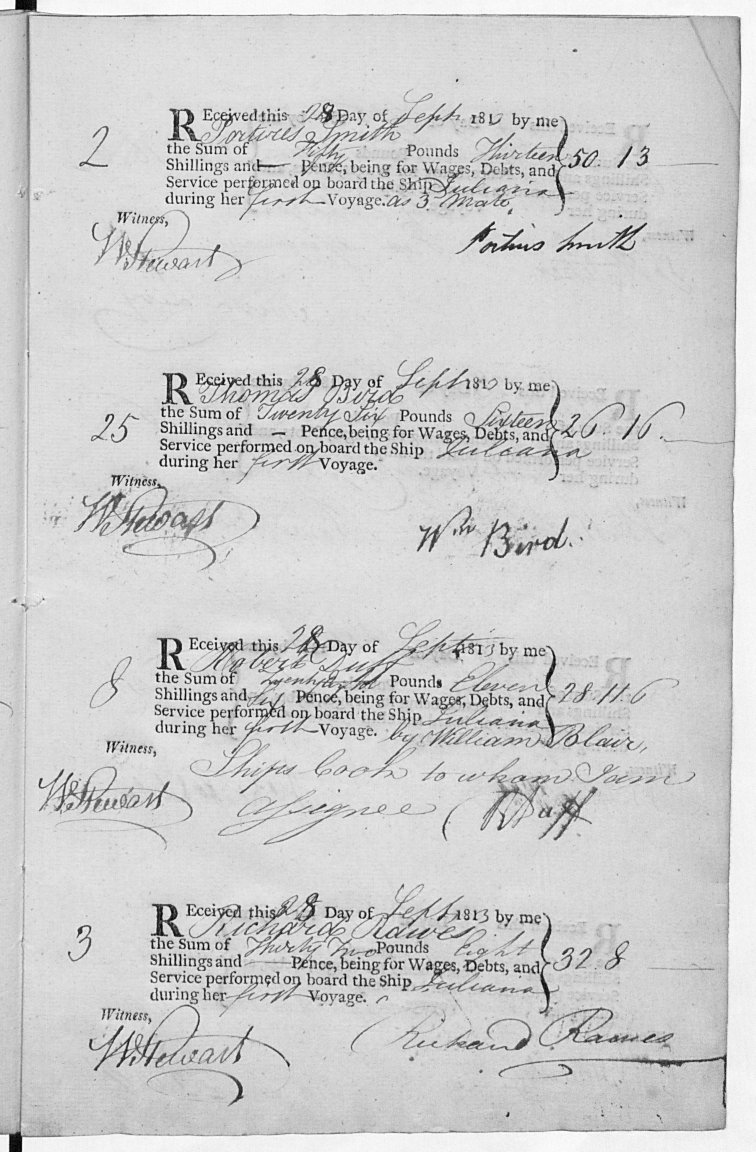 2
REceived this 28 Day of Sept 1813 by me
Portius Smith
the Sum of Fifty Pounds Thirteen
Shillings and — Pence, being for Wages, Debts, and
50 . 13 —
Service performed on board the Ship Juliana
during her first Voyage. as 3 Mate
Witness,
W Stewart
Portius Smith
25
REceived this 28 Day of Sept 1813 by me
Thomas Bird
the Sum of Twenty Six Pounds Sixteen
Shillings and — Pence, being for Wages, Debts, and
26 16 —
Service performed on board the Ship Juliana
during her first Voyage.
Witness,
W Stewart
Wm Bird.
8
REceived this 28 Day of Sept 1813 by me
Robert Duff
the Sum of Pounds Eleven
Shillings and Six Pence, being for Wages, Debts, and
28 . 11 . 6
Service performed on board the Ship Juliana
during her first Voyage. by William Blair,
Witness,
Ships Cook to whom I am
W Stewart
assignee
R Duff
3
REceived this 28 Day of Sept 1813 by me
Richard Rawes
the Sum of Thirty Two Pounds Eight
Shillings and — Pence, being for Wages, Debts, and
32 . 8 —
Service performed on board the Ship Juliana
during her first Voyage.
Witness,
W Stewart
Richard Rawes